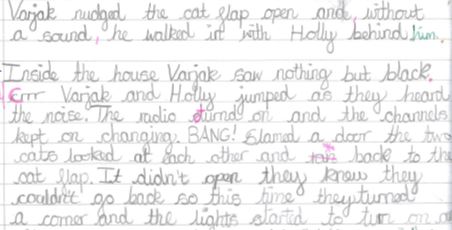 Varjak nudged the cat flap open and, without
a sound, he walked in with Holly behind him.
Inside the house Varjak saw nothing but black.
Crrr Varjak and Holly jumped as they heard
the noise. The radio turnd on and the channels
kept on changing. BANG! Slamed a door the two
cats looked at each other and ran back to the
cat flap. It didn't open they knew they
couldn't go back so this time they turned
a corner and the lights startd to turn on a